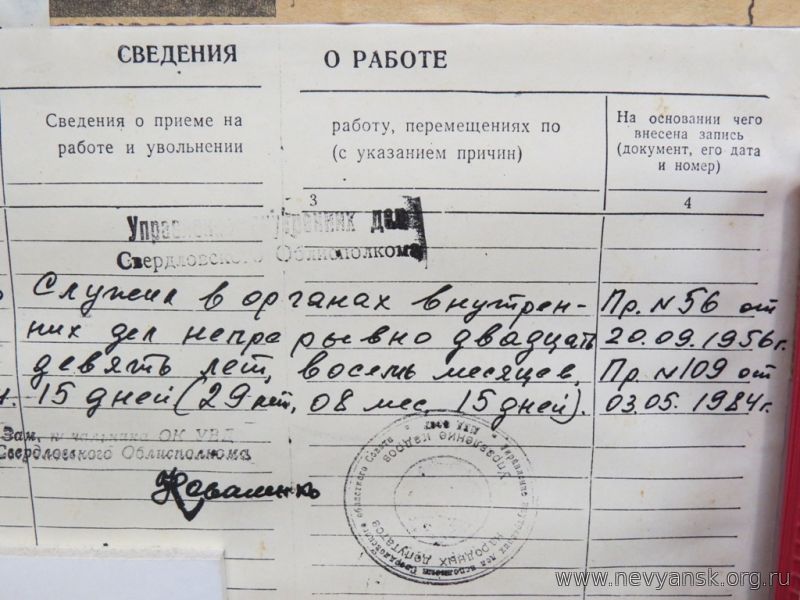 СВЕДЕНИЯ О РАБОТЕ
Сведения о приеме на работу, перемещениях по
работе и увольнении (с указанием причин)
На основании чего
внесена запись
(документ, его дата
и номер)
3 4
Управление внутренних дел
Свердловского Облисполкома
Служил в органах внутрен-
них дел непрерывно двадцать
девять лет, восемь месяцев,
15 дней (29 лет, 08 мес. 15 дней).
Пр. N56 от
20.09.1956г.
Пр. N109 от
03.05.1984г.
Зам. начальника ОК УВД
Свердловского Облисполкома
Коваленко
Управление кадров
народных депутатов
www.nevyansk.org.ru